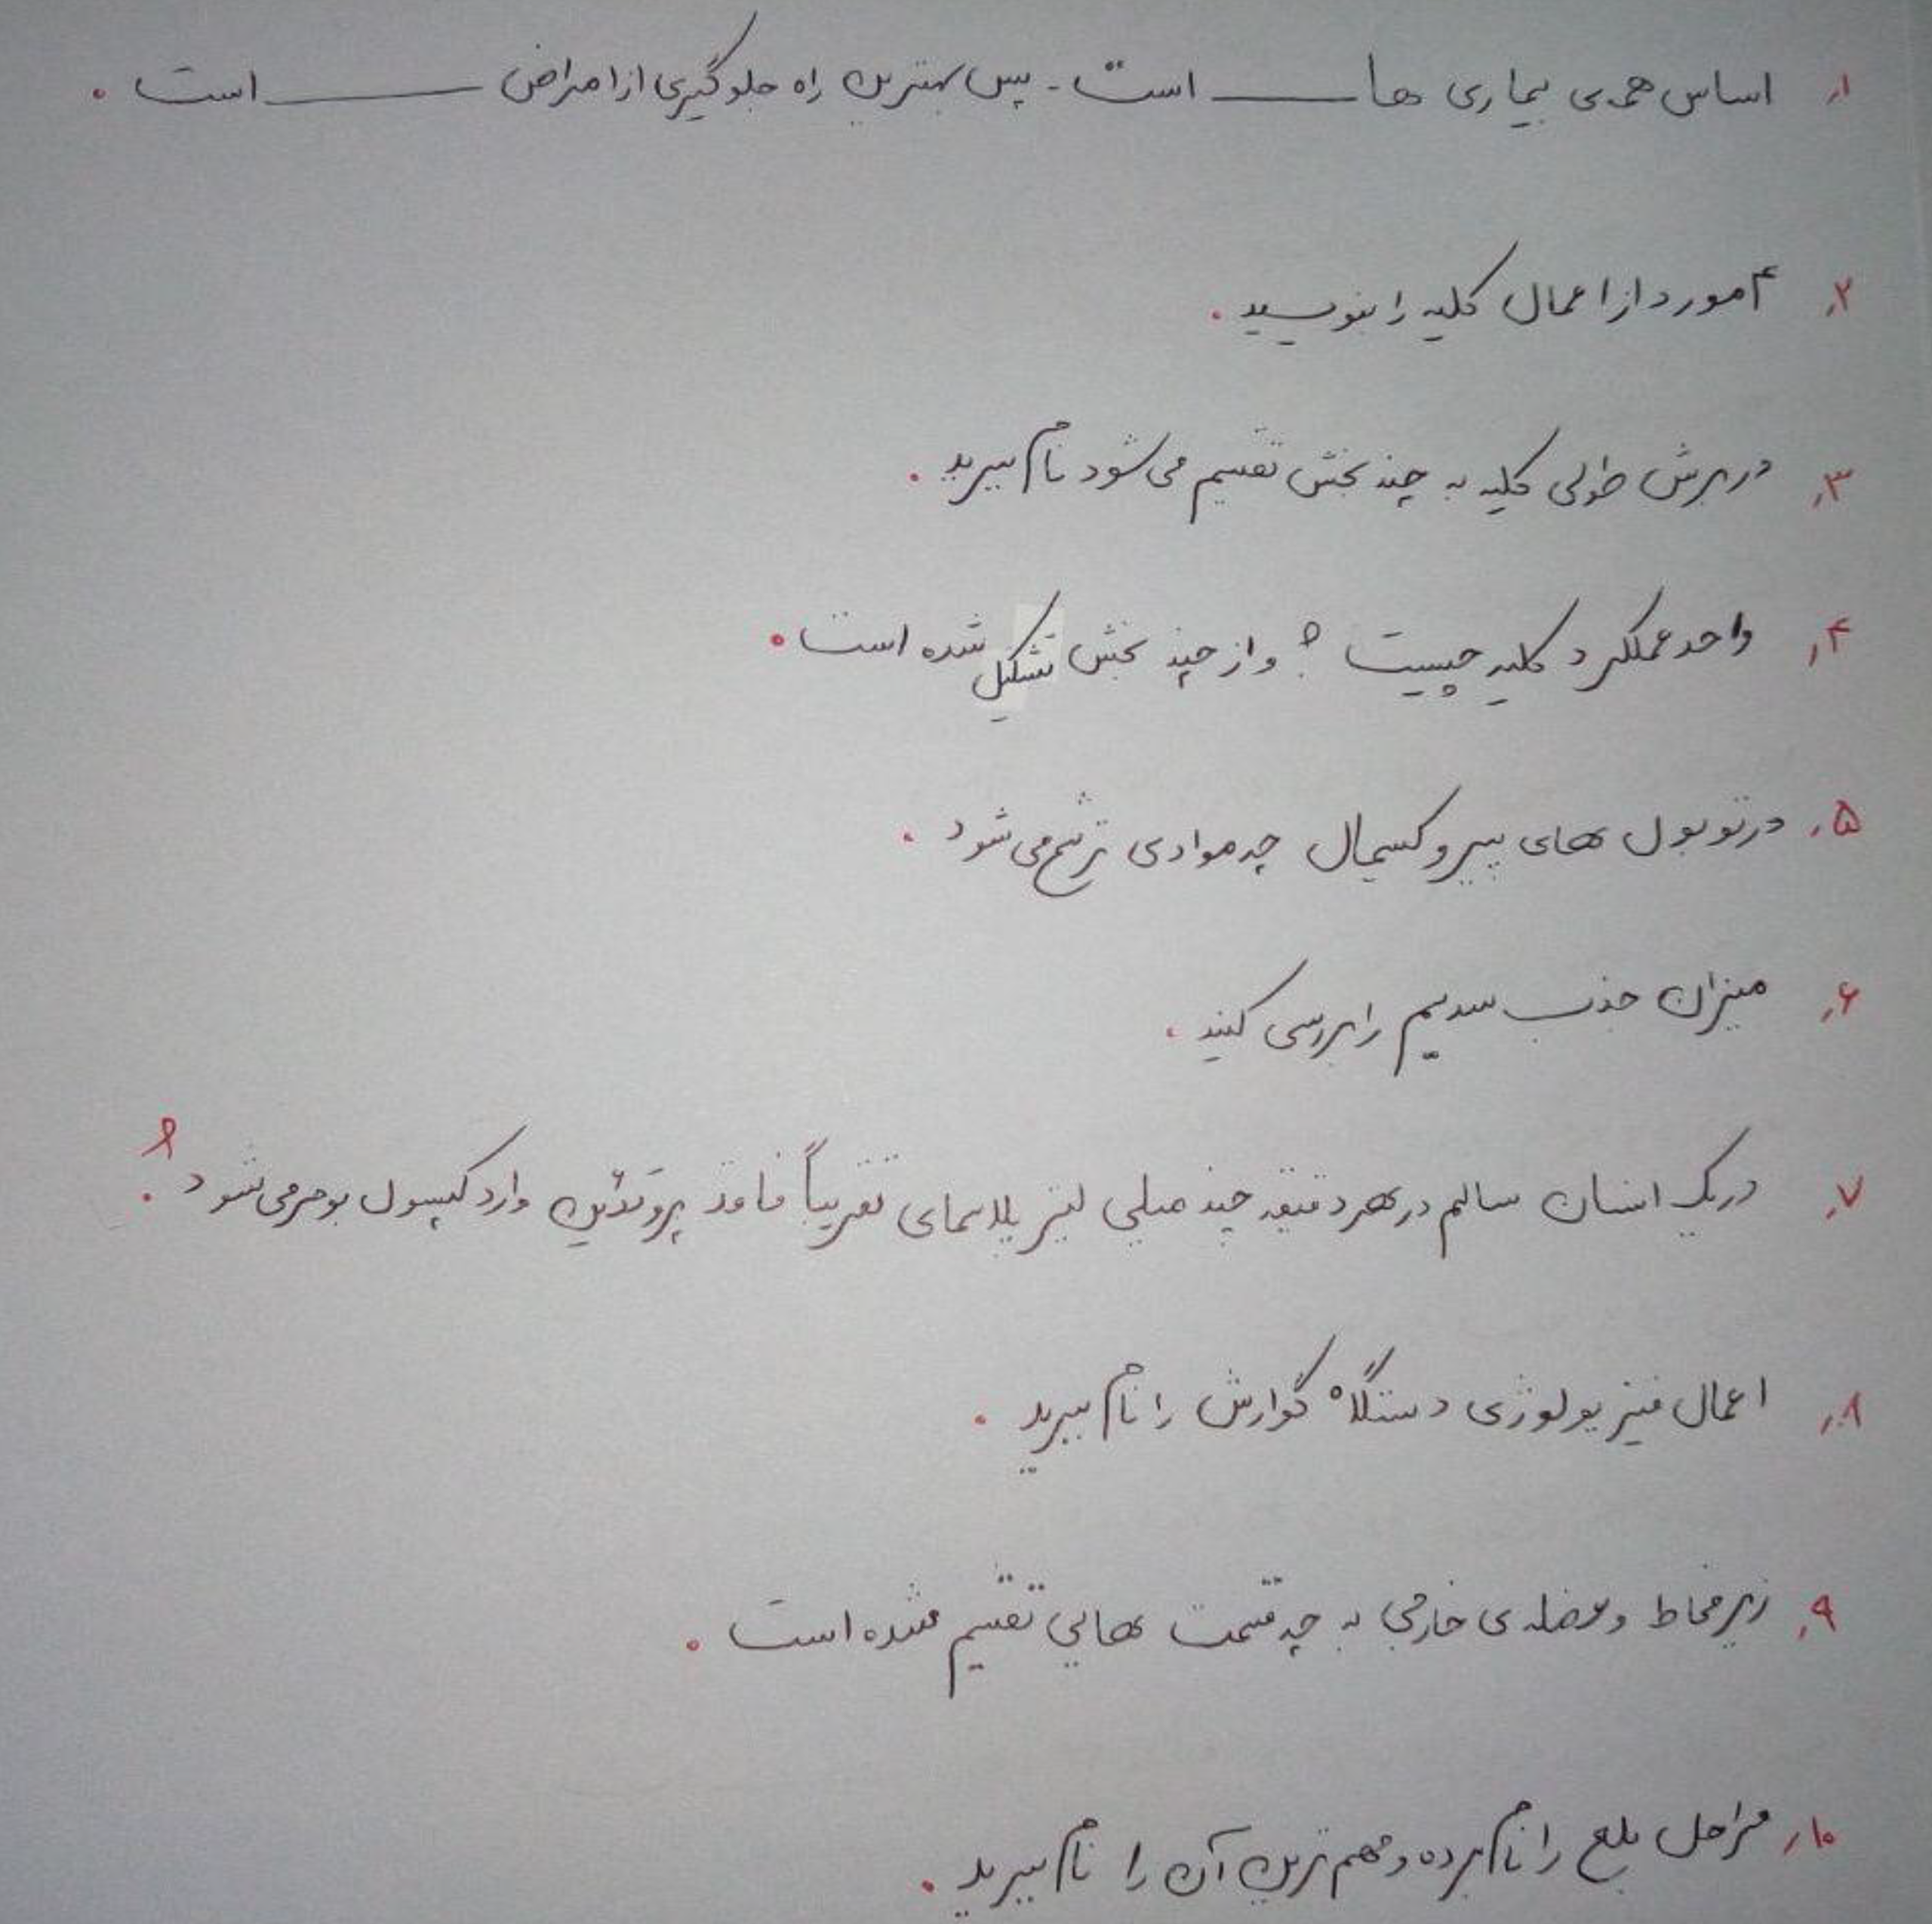 ۱. اساس همه‌ی بیماری ها ــــــــ است. پس بهترین راه جلوگیری از امراض ــــــــ است.
۲. ۴ مورد از اعمال کلیه را بنویسید.
۳. در برش طولی کلیه به چند بخش تقسیم می شود نام ببرید.
۴. واحد عملکرد کلیه چیست؟ و از چند بخش تشکیل شده است.
۵. در توبول های پیروکسیمال چه موادی ترشح می شود.
۶. میزان جذب سدیم را بررسی کنید.
۷. در یک انسان سالم در هر دقیقه چند میلی لیتر پلاسمای تقریباً فاقد پروتئین وارد کپسول بومر می شود؟
۸. اعمال فیزیولوژی دستگاه گوارش را نام ببرید.
۹. زیر مخاط و عضله ی خارجی به چه قسمت هایی تقسیم شده است.
۱۰. مراحل بلع را نام برده و مهم ترین آن را نام ببرید.